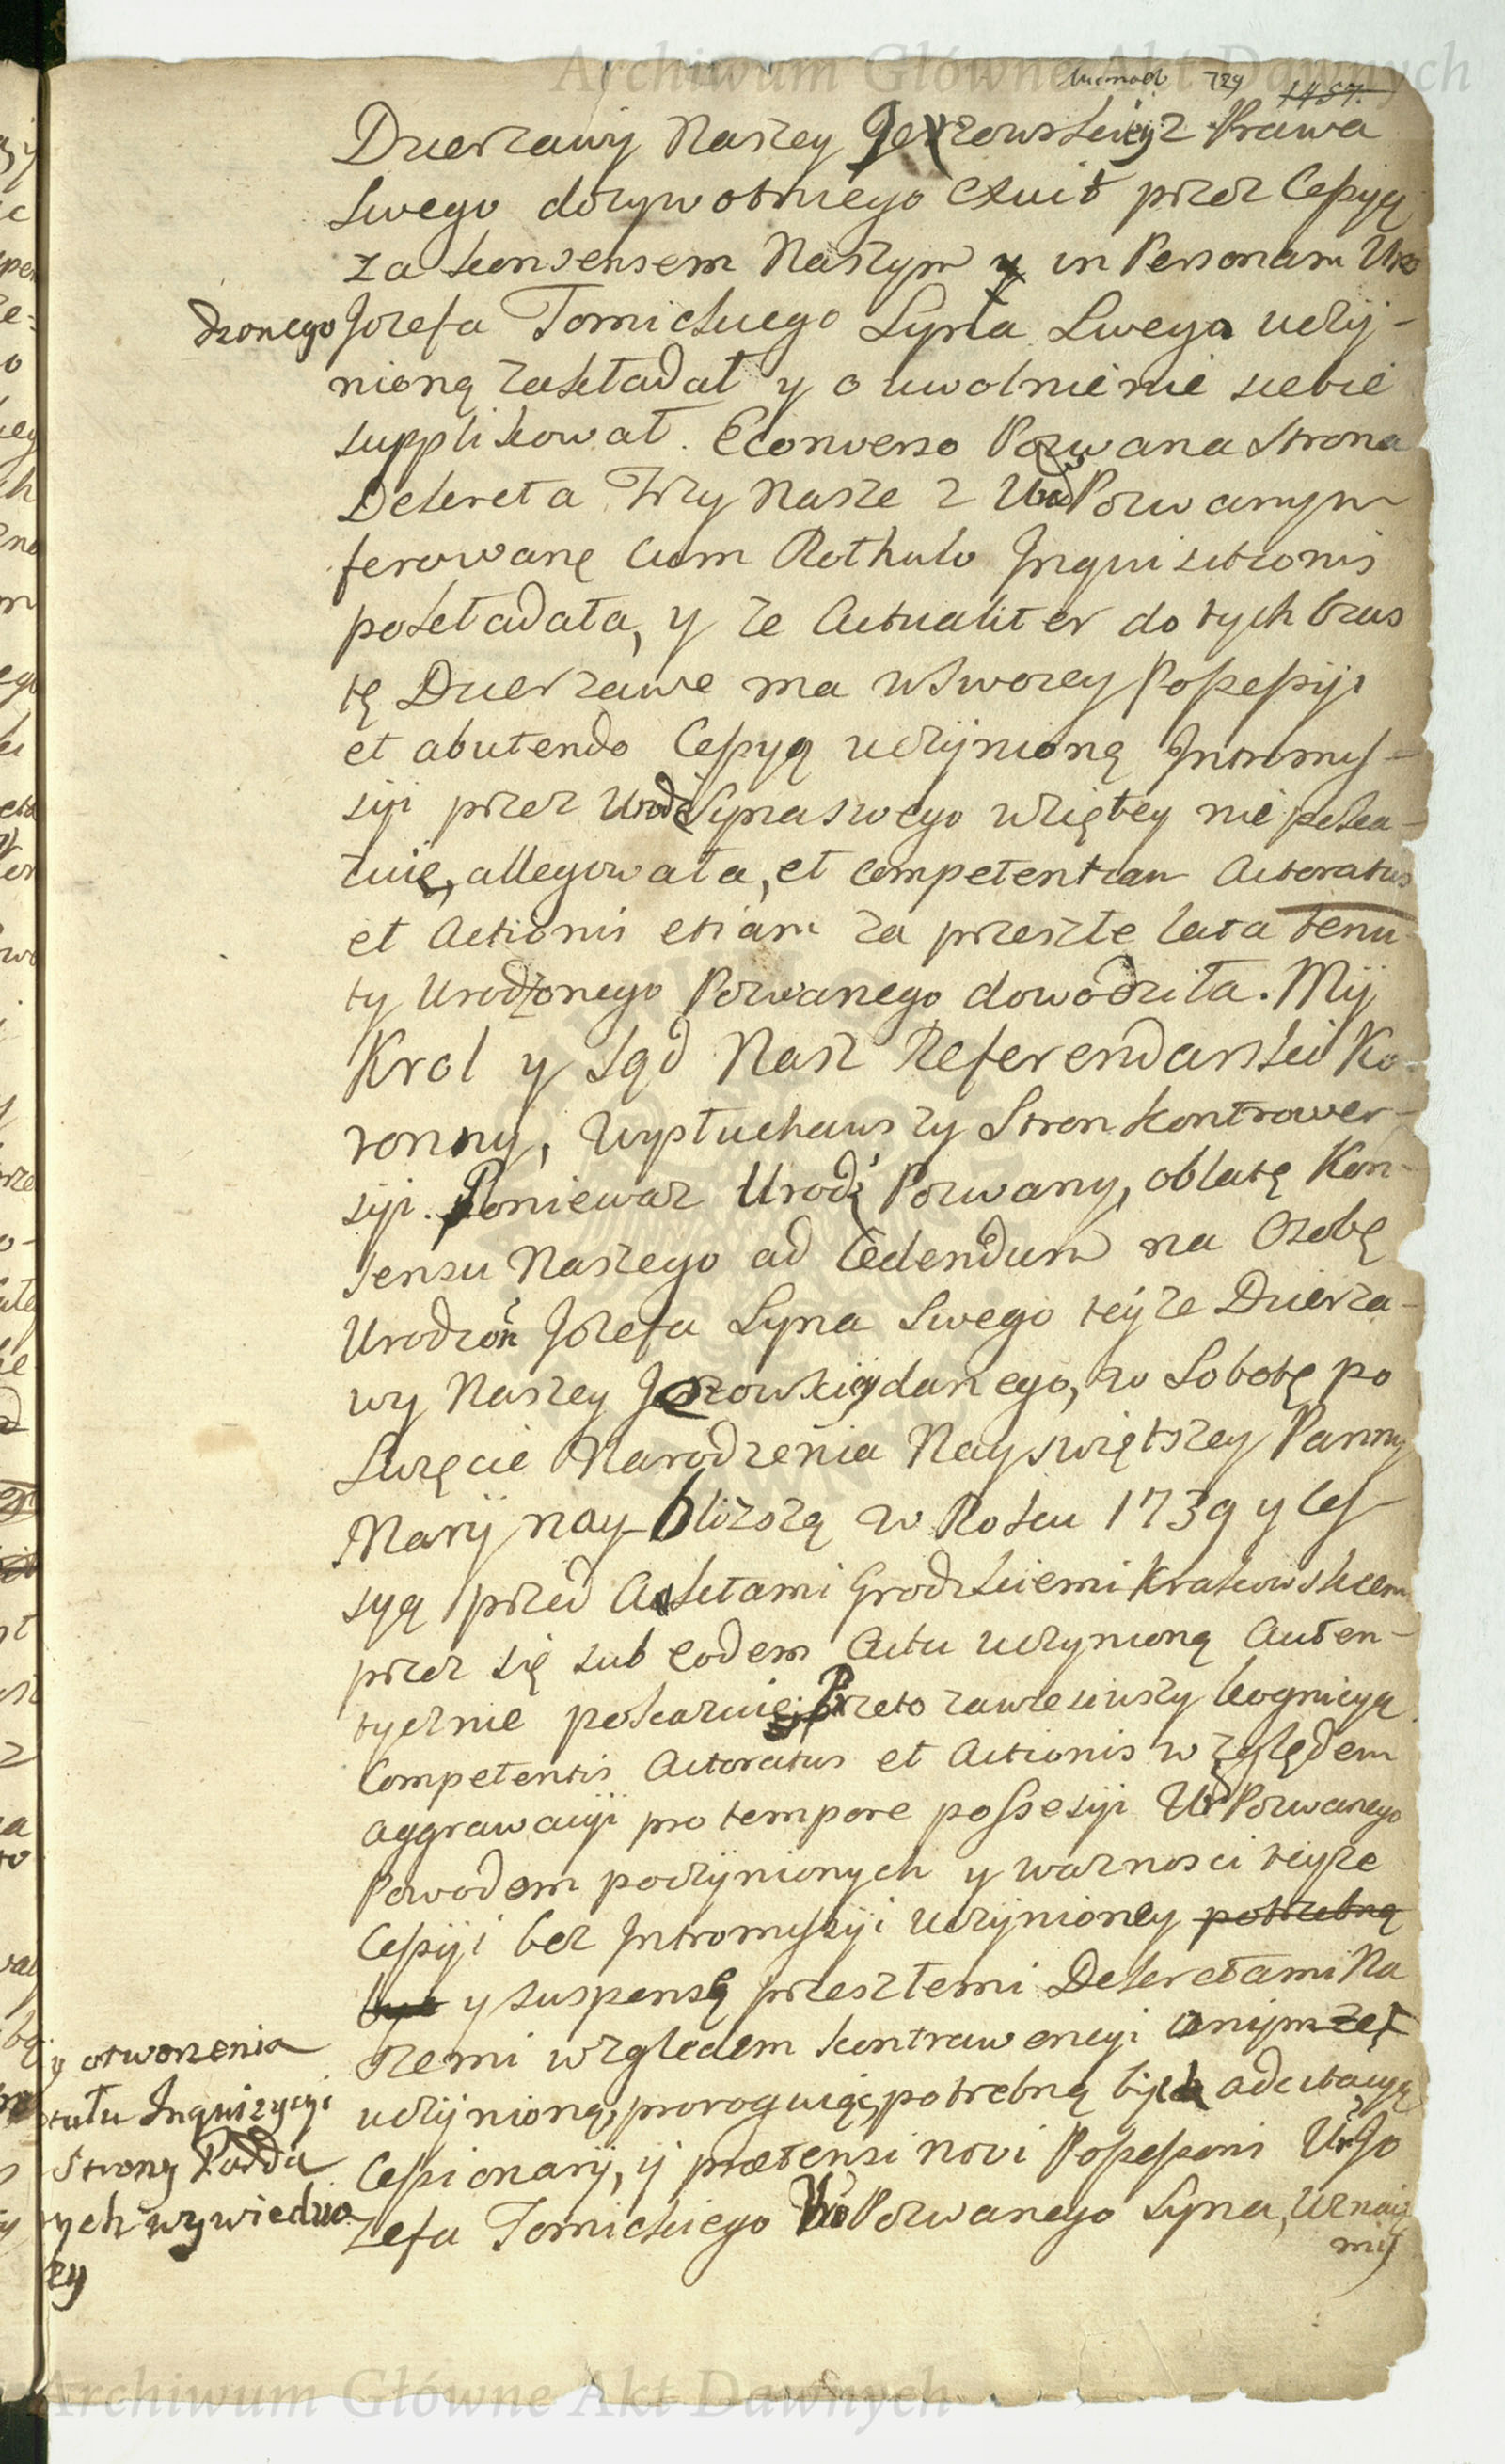 Archiwum Główne Akt Dawnych
729 1457.
Dzierzawy Naszey Jezrowskiey z Prawa
Swego dozywotniego Exuit przez Cessyą
za konsensem Naszym y in Personam Uro
dzonego Jozefa Tomickiego Syna Swego uczy-
nioną zaskładał y o uwolnienie siebie
supplikował. Econverso Pozwana Strona
Dekreta Trzy Nasze z Urod Pozwanym
ferowane Cum Rothulo Inquisitionis
poskładała, y ze Actualiter do tych Czas
tę Dzierzawe ma w swoiey Possessyi
et abutendo Cessyą uczynioną Intromys-
syi przez Urodz Syna swego wziętey nie pokaa-
zuie, allegowała, et competentiam Actoratus
et Actionis etiam za przeszłe lata tenu
ty Urodzonego Pozwanego dowodziła. My
Krol y Sąd Nasz Referendarski Ko-
ronny, Wysłuchawszy Stron kontrower-
syi. Poniewaz Urodz Pozwany, oblatę Kon-
sensu Naszego ad Cedendum na Osobę
Urodzon Jozefa Syna Swego teyze Dzierza-
wy Naszey Jezrowskiey danego, w Sobotę po
Swięcie Narodzenia Nayswiętszey Panny
Maryi nay-blizszą w Roku 1739 y Ces-
syą przed Aktami Grodzkiemi Krakowskiem
przez się sub eodem Actu uczynioną Auten-
tycznie pokazuie; Przeto zawiesiwszy kognicyą
Competentis Actoratus et Actionis względem
aggrawacyi pro tempore possesyi Ur Pozwanego
Powodem poczynionych y waznosci teyze
Cessyi bez Intromyssyi uczynioney potrzebną
być y suspensę przeszłemi Dekretami Na
szemi względem kontrawencyi
uczynioną, proroguiąc, potrebną być adcitacyą
Cessionarij, y prætensi novi Possessoris Ur Jo
zefa Tomickiego Ur Pozwanego Syna, Uznaię
my
y otworzenia
tułu Inquizycyi
Strony Podda
nych wywiedzio
ey
Archiwum Główne Akt Dawnych